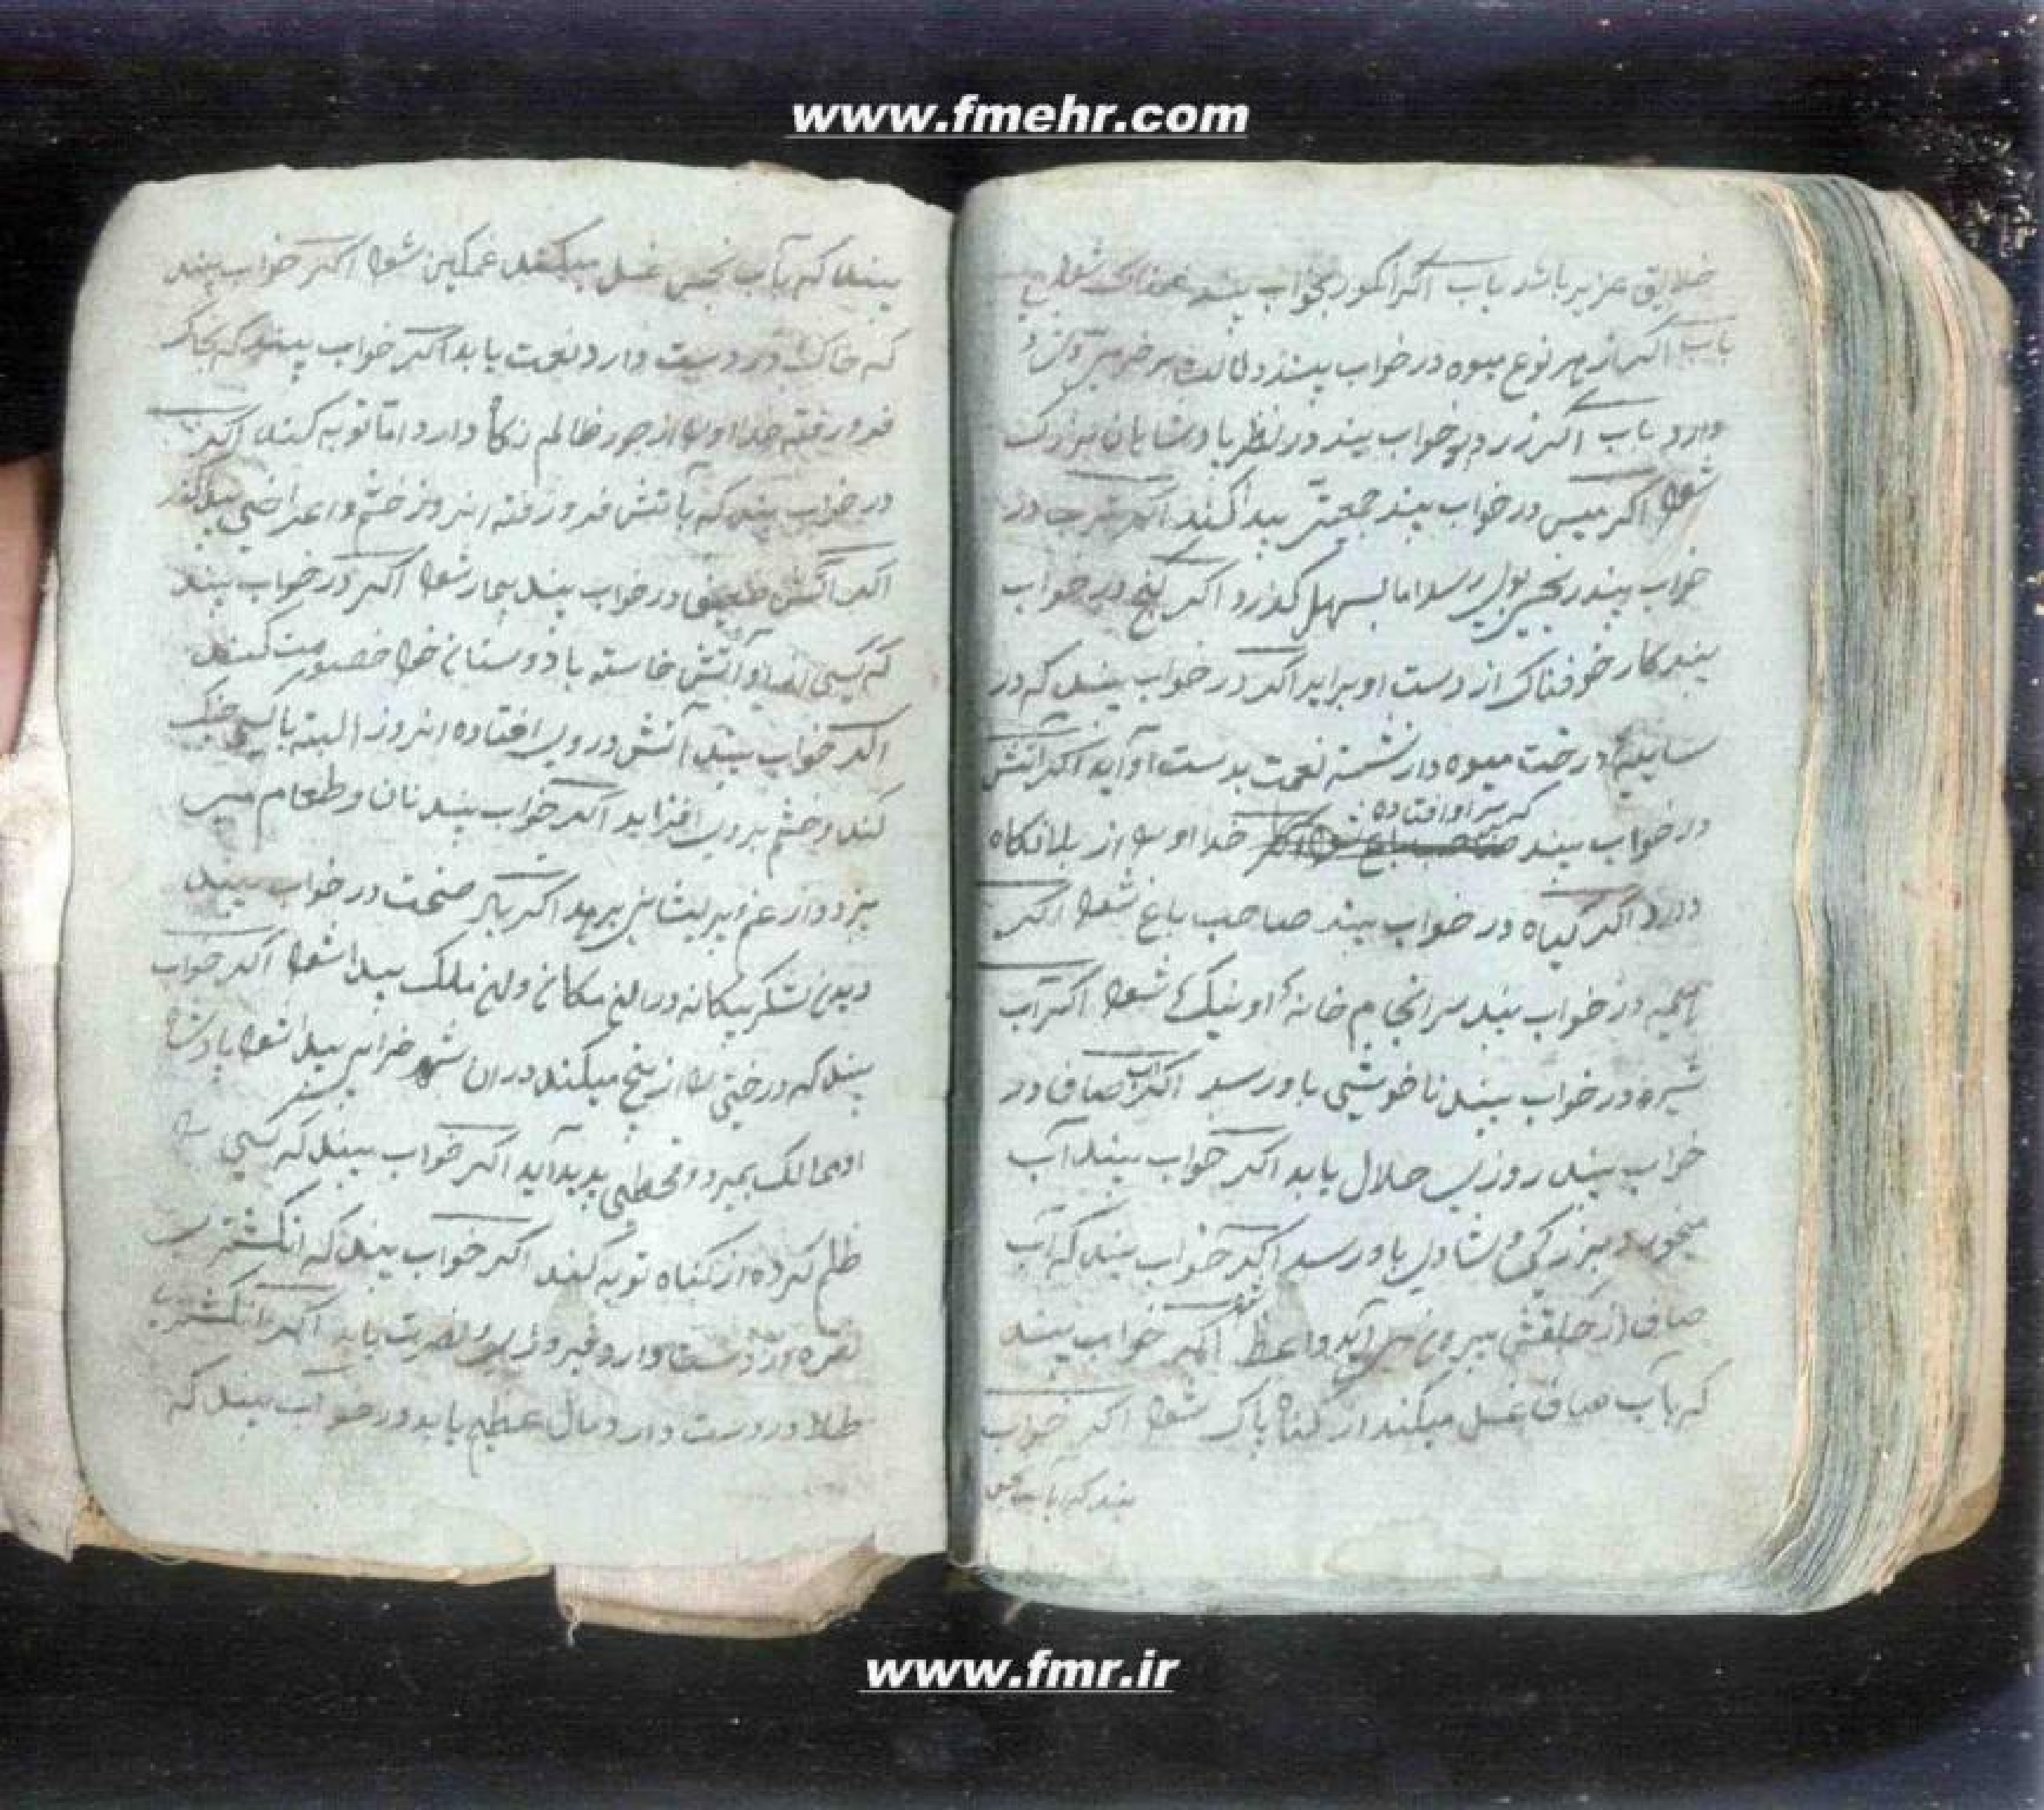 www.fmehr.com
خلایق عزیز باشد باب اگر انگور بخواب بیند غمناک شود
باب اگر از هر نوع میوه در خواب بیند
باب اگر زر در خواب بیند در نظر پادشاهان بزرگ
شود اگر مس در خواب بیند جمعیتی پیدا کند اگر در
خواب بیند رنجی بوی رسد اما بسهل گذرد اگر گنج در خواب
بیند کار خوفناک از دست او براید اگر در خواب بیند که در
سایهٔ درخت میوه دار نشسته نعمت بدست او آید اگر آتش
که بر او افتاده
در خواب بیند خدا او را از بلا نگاه
دارد اگر گیاه در خواب بیند صاحب باغ شود اگر
در خواب بیند سرانجام خانهٔ او نیک شود اگر آب
تیره در خواب بیند ناخوشی باو رسد اگر آب صاف در
خواب بیند روزی حلال یابد اگر خواب بیند آب
میخورد بزرگی و شادی باو رسد اگر خواب بیند که آب
صاف از حلقش بیرون می آید واعظ شود اگر خواب بیند
که بآب صاف غسل میکند از گناه پاک شود اگر خواب
بیند که بآب نجس
بیند که بآب نجس غسل میکند غمگین شود اگر خواب بیند
که خاک در دست دارد نعمت یابد اگر خواب بیند که بخاک
فرو رفته خدا او را از جور ظالم نگاه دارد اما توبه کند اگر
در خواب بیند که بآتش فرو رفته انروز خشم و اعراضی
اگر آتش در خواب بیند بیمار شود اگر در خواب بیند
که کسی آتش خاسته با دوستان خود خصومت کند
اگر خواب بیند آتش در وی افتاده انروز البته با کسی جنگ
کند و خشم بر وی افزاید اگر خواب بیند نان و طعام می
پزد و از غم و پریشانی برهد اگر در خواب بیند
دیدن لشکر بیگانه در آن مکان و آن ملک پیدا شود اگر خواب
بیند که درختی را از بیخ میکند در ان شهر خرابی پیدا شود پادشاه
او ممالک بمیرد و قحطی پدید آید اگر خواب بیند که کسی را
ظلم کرده از گناه توبه کند اگر خواب بیند که انگشتری
نقره در دست دارد فیروزی و نصرت یابد اگر انگشتری
طلا در دست دارد مال عظیم یابد در خواب بیند که
www.fmr.ir